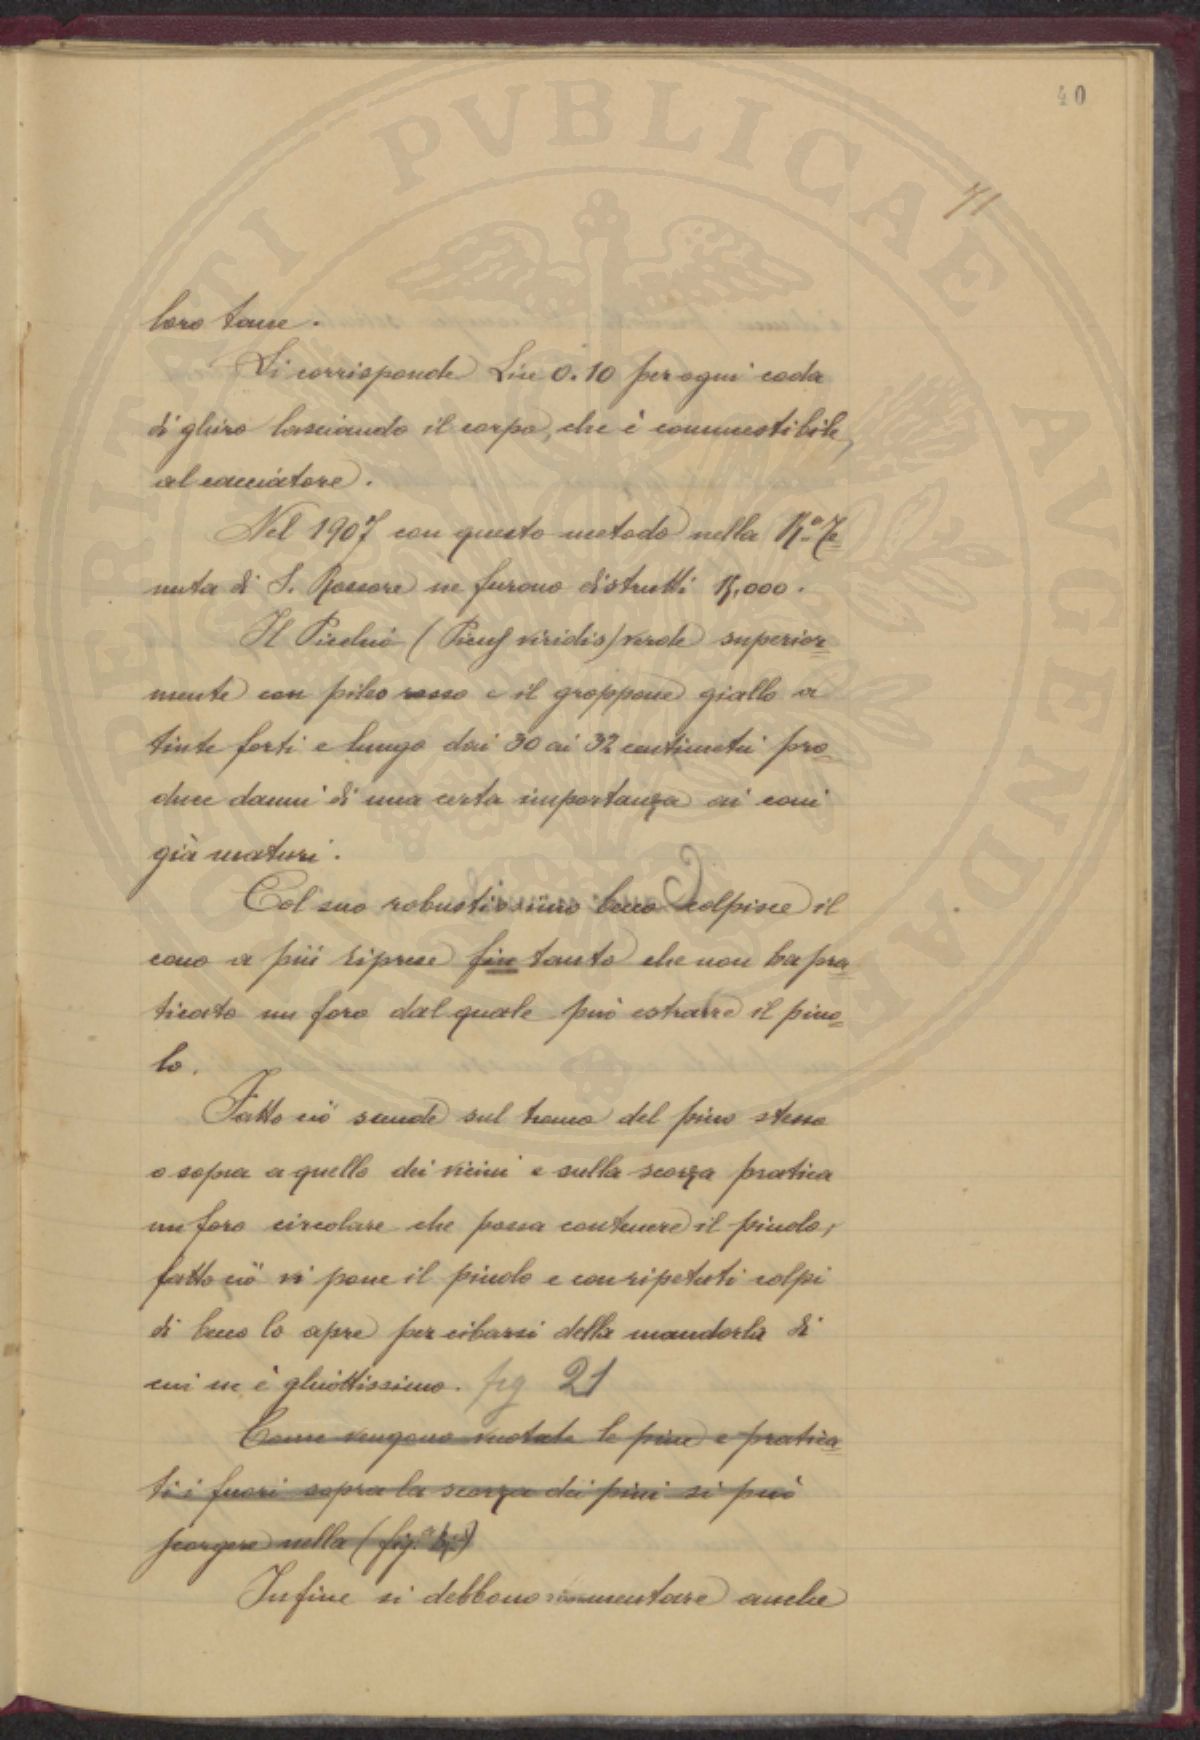 40
71
loro tane.
Si corrisponde Lire 0.10 per ogni coda
di ghiro lasciando il corpo, che è commestibile,
al cacciatore.
Nel 1907 con questo metodo nella R.a Te=
nuta di S. Rossore ne furono distrutti
Il Picchio (Picus viridis) verde superior=
mente con pileo rosso e il groppone giallo a
tinte forti e lungo dai 30 ai 32 centimetri pro=
duce danni di una certa importanza ai coni
già maturi.
Col suo robustissimo becco colpisce il
cono a più riprese fin tanto che non ha pra=
ticato un foro dal quale può estrarre il pino=
lo.
Fatto ciò scende sul tronco del pino stesso
o sopra a quello dei vicini e sulla scorza pratica
un foro circolare che possa contenere il pinolo,
fatto ciò vi pone il pinolo e con ripetuti colpi
di becco lo apre per cibarsi della mandorla di
cui ne è ghiottissimo. fig 21
Come vengono vuotate le pine e pratica=
ti i fuori sopra la scorza dei pini si può
scorgere nella (fig.a
Infine si debbono rammentare anche
PERITATI PVBLICAE AVGENDAE